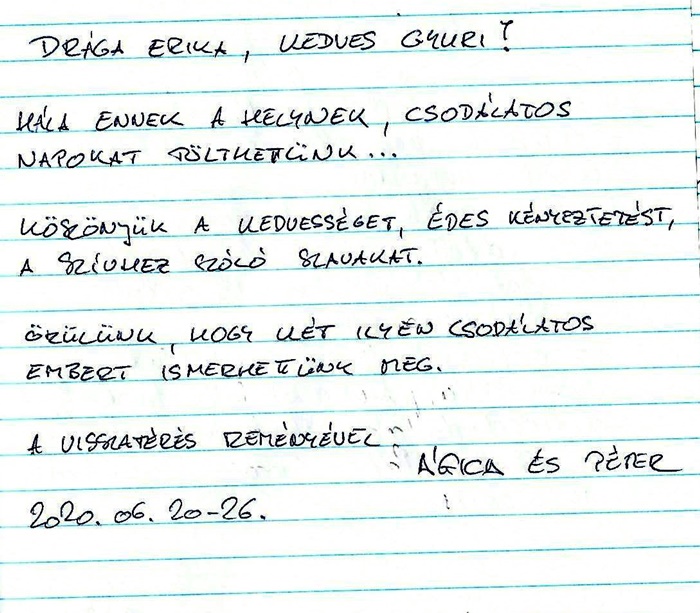 DRÁGA ERIKA, KEDVES GYURI!
HÁLA ENNEK A HELYNEK, CSODÁLATOS
NAPOKAT TÖLTHETTÜNK...
KÖSZÖNJÜK A KEDVESSÉGET, ÉDES KÉNYEZTETÉST,
A SZÍVHEZ SZÓLÓ SZAVAKAT.
ÖRÜLÜNK, HOGY KÉT ILYEN CSODÁLATOS
EMBERT ISMERHETTÜNK MEG.
A VISSZATÉRÉS REMÉNYÉVEL
ÁGICA ÉS PÉTER
2020. 06. 20-26.